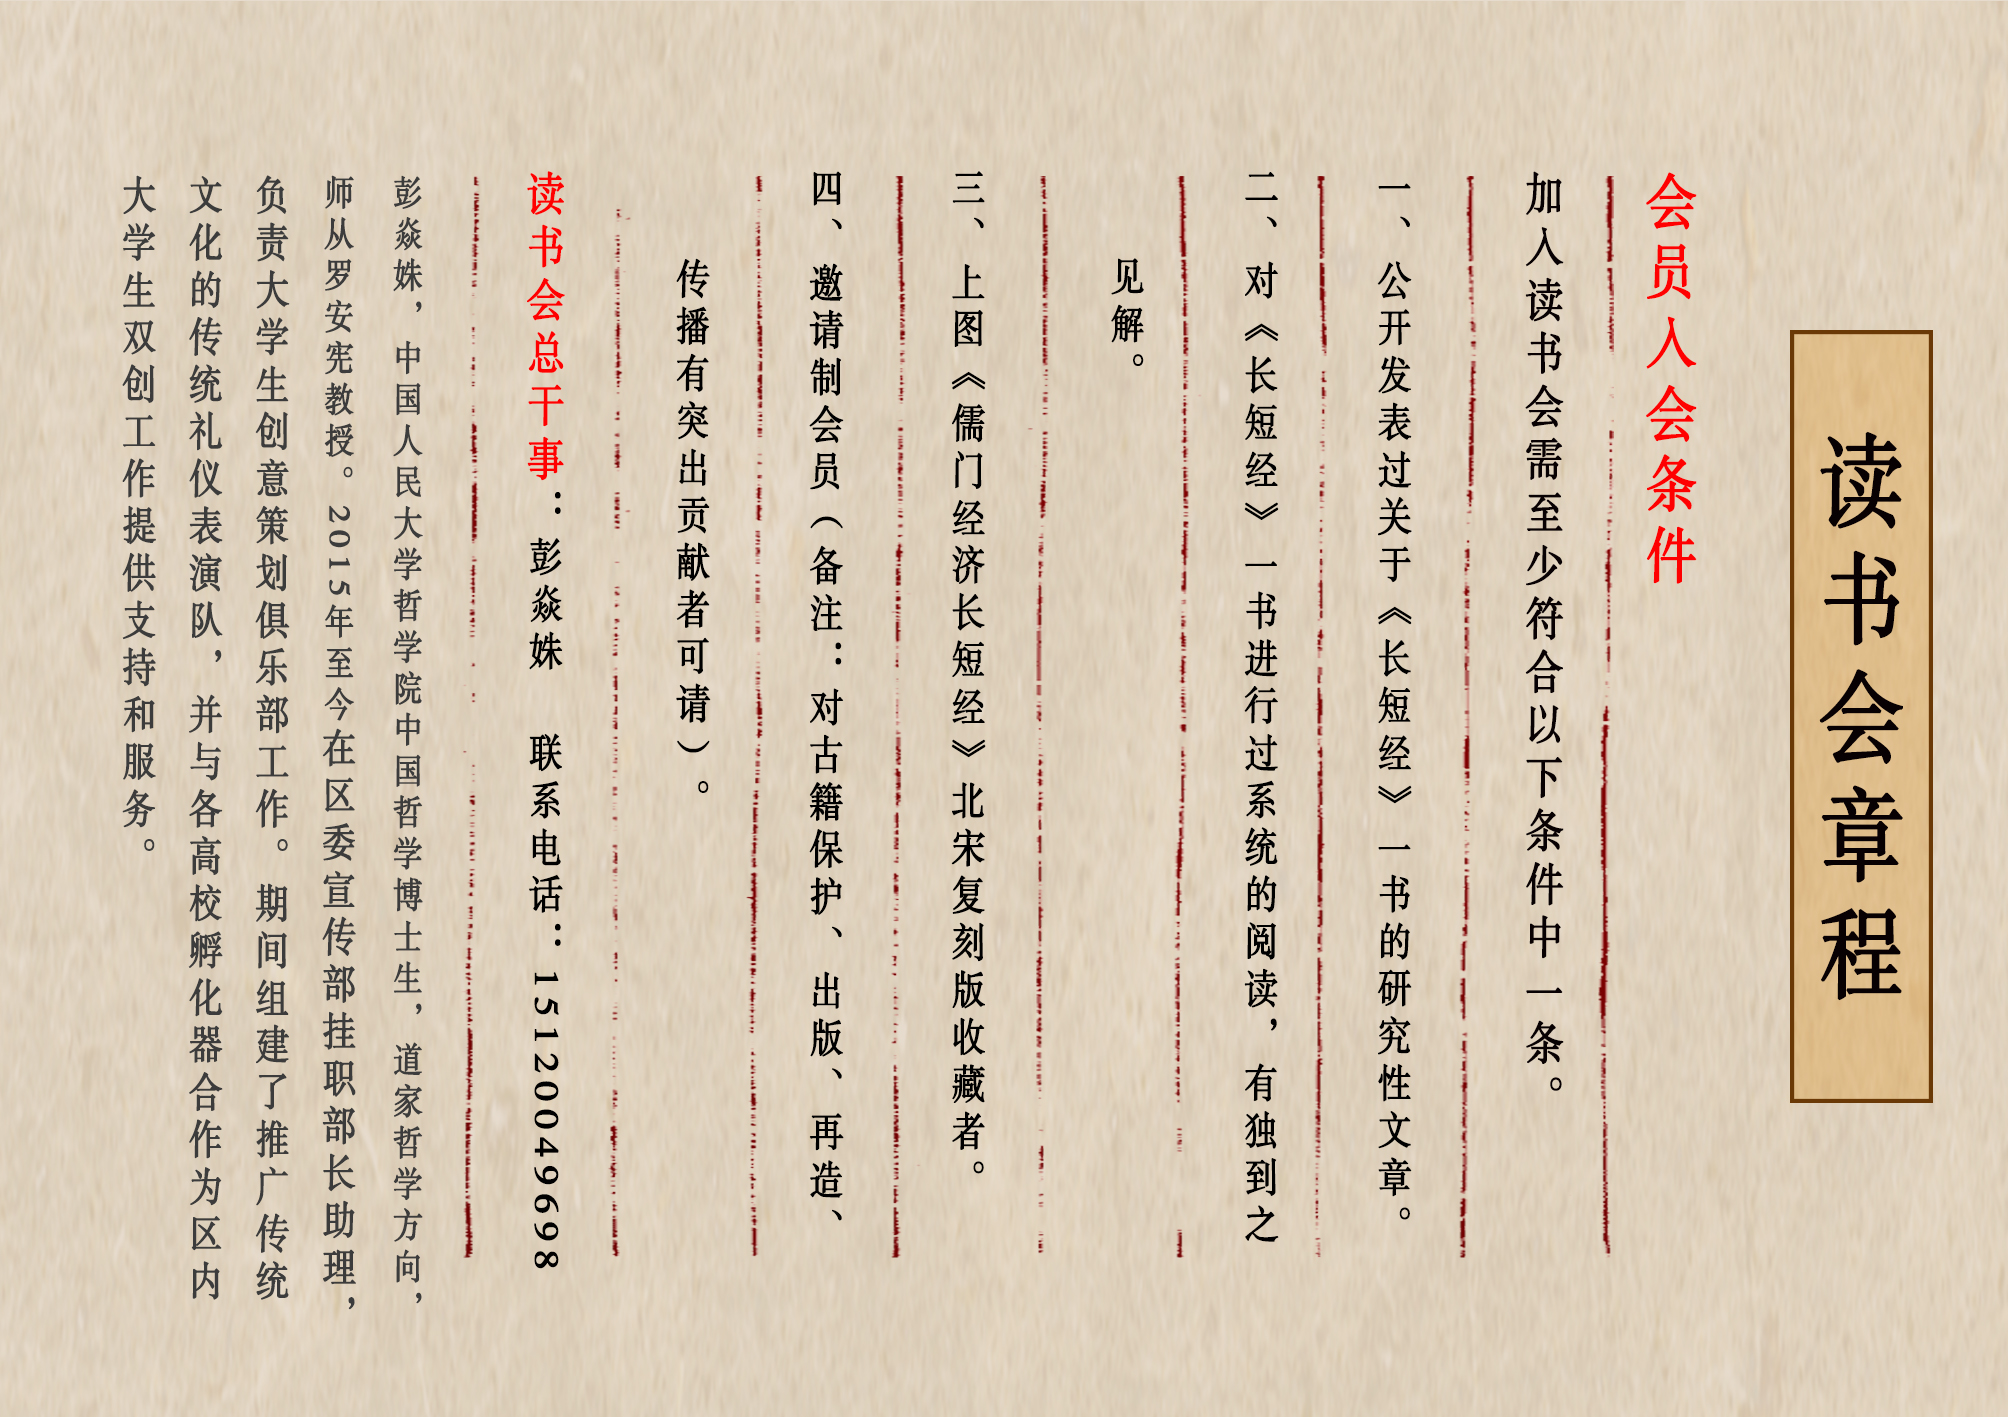 读书会章程
会员入会条件
加入读书会需至少符合以下条件中一条。
一、公开发表过关于《长短经》一书的研究性文章。
二、对《长短经》一书进行过系统的阅读，有独到之
见解。
三、上图《儒门经济长短经》北宋复刻版收藏者。
四、邀请制会员（备注：对古籍保护、出版、再造、
传播有突出贡献者可请）。
读书会总干事：彭焱姝 联系电话：15120049698
彭焱姝，中国人民大学哲学院中国哲学博士生，道家哲学方向，
师从罗安宪教授。2015年至今在区委宣传部挂职部长助理，
负责大学生创意策划俱乐部工作。期间组建了推广传统
文化的传统礼仪表演队，并与各高校孵化器合作为区内
大学生双创工作提供支持和服务。